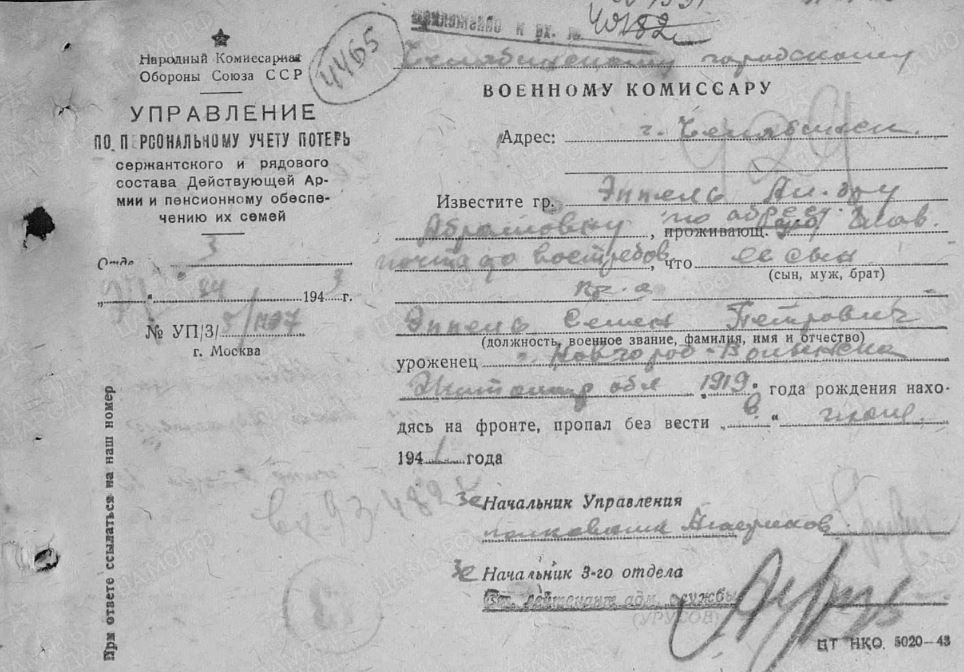 Народный Комиссариат
Обороны Союза ССР
УПРАВЛЕНИЕ
ПО ПЕРСОНАЛЬНОМУ УЧЕТУ ПОТЕРЬ
сержантского и рядового
состава Действующей Ар-
мии и пенсионному обеспе-
чению их семей
Отдел 3
194 3 г.
№ УП/3/
г. Москва
При ответе ссылаться на наш номер
4465
Челябинскому городскому
ВОЕННОМУ КОМИССАРУ
Адрес: г. Челябинск.
Известите гр. Эппель
Абрамовну, проживающ.
почта до востребов, что ее сын
(сын, муж, брат)
кр-ц
Эппель Семен Петрович
(должность, военное звание, фамилия, имя и отчество)
уроженец г. Новгород-Волынска
Житомир обл 1919 года рождения нахо-
дясь на фронте, пропал без вести „ в “ июне
194 1 года
Зс Начальник Управления
полковник
Зс Начальник 3-го отдела
Ст. лейтенант адм. службы
(УРУСОВ)
вх 93482
3
ЦТ НКО. 5020—43